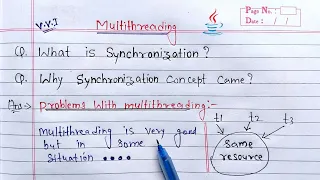 V.V.I
Multithreading
Java
Page No.:
Date: / /
Q. What is Synchronization?
Q. Why Synchronization Concept Came?
Ans → Problems With multithreading:-
Multithreading is very good
but in some
situation ....
t1 t2 t3
same
resource